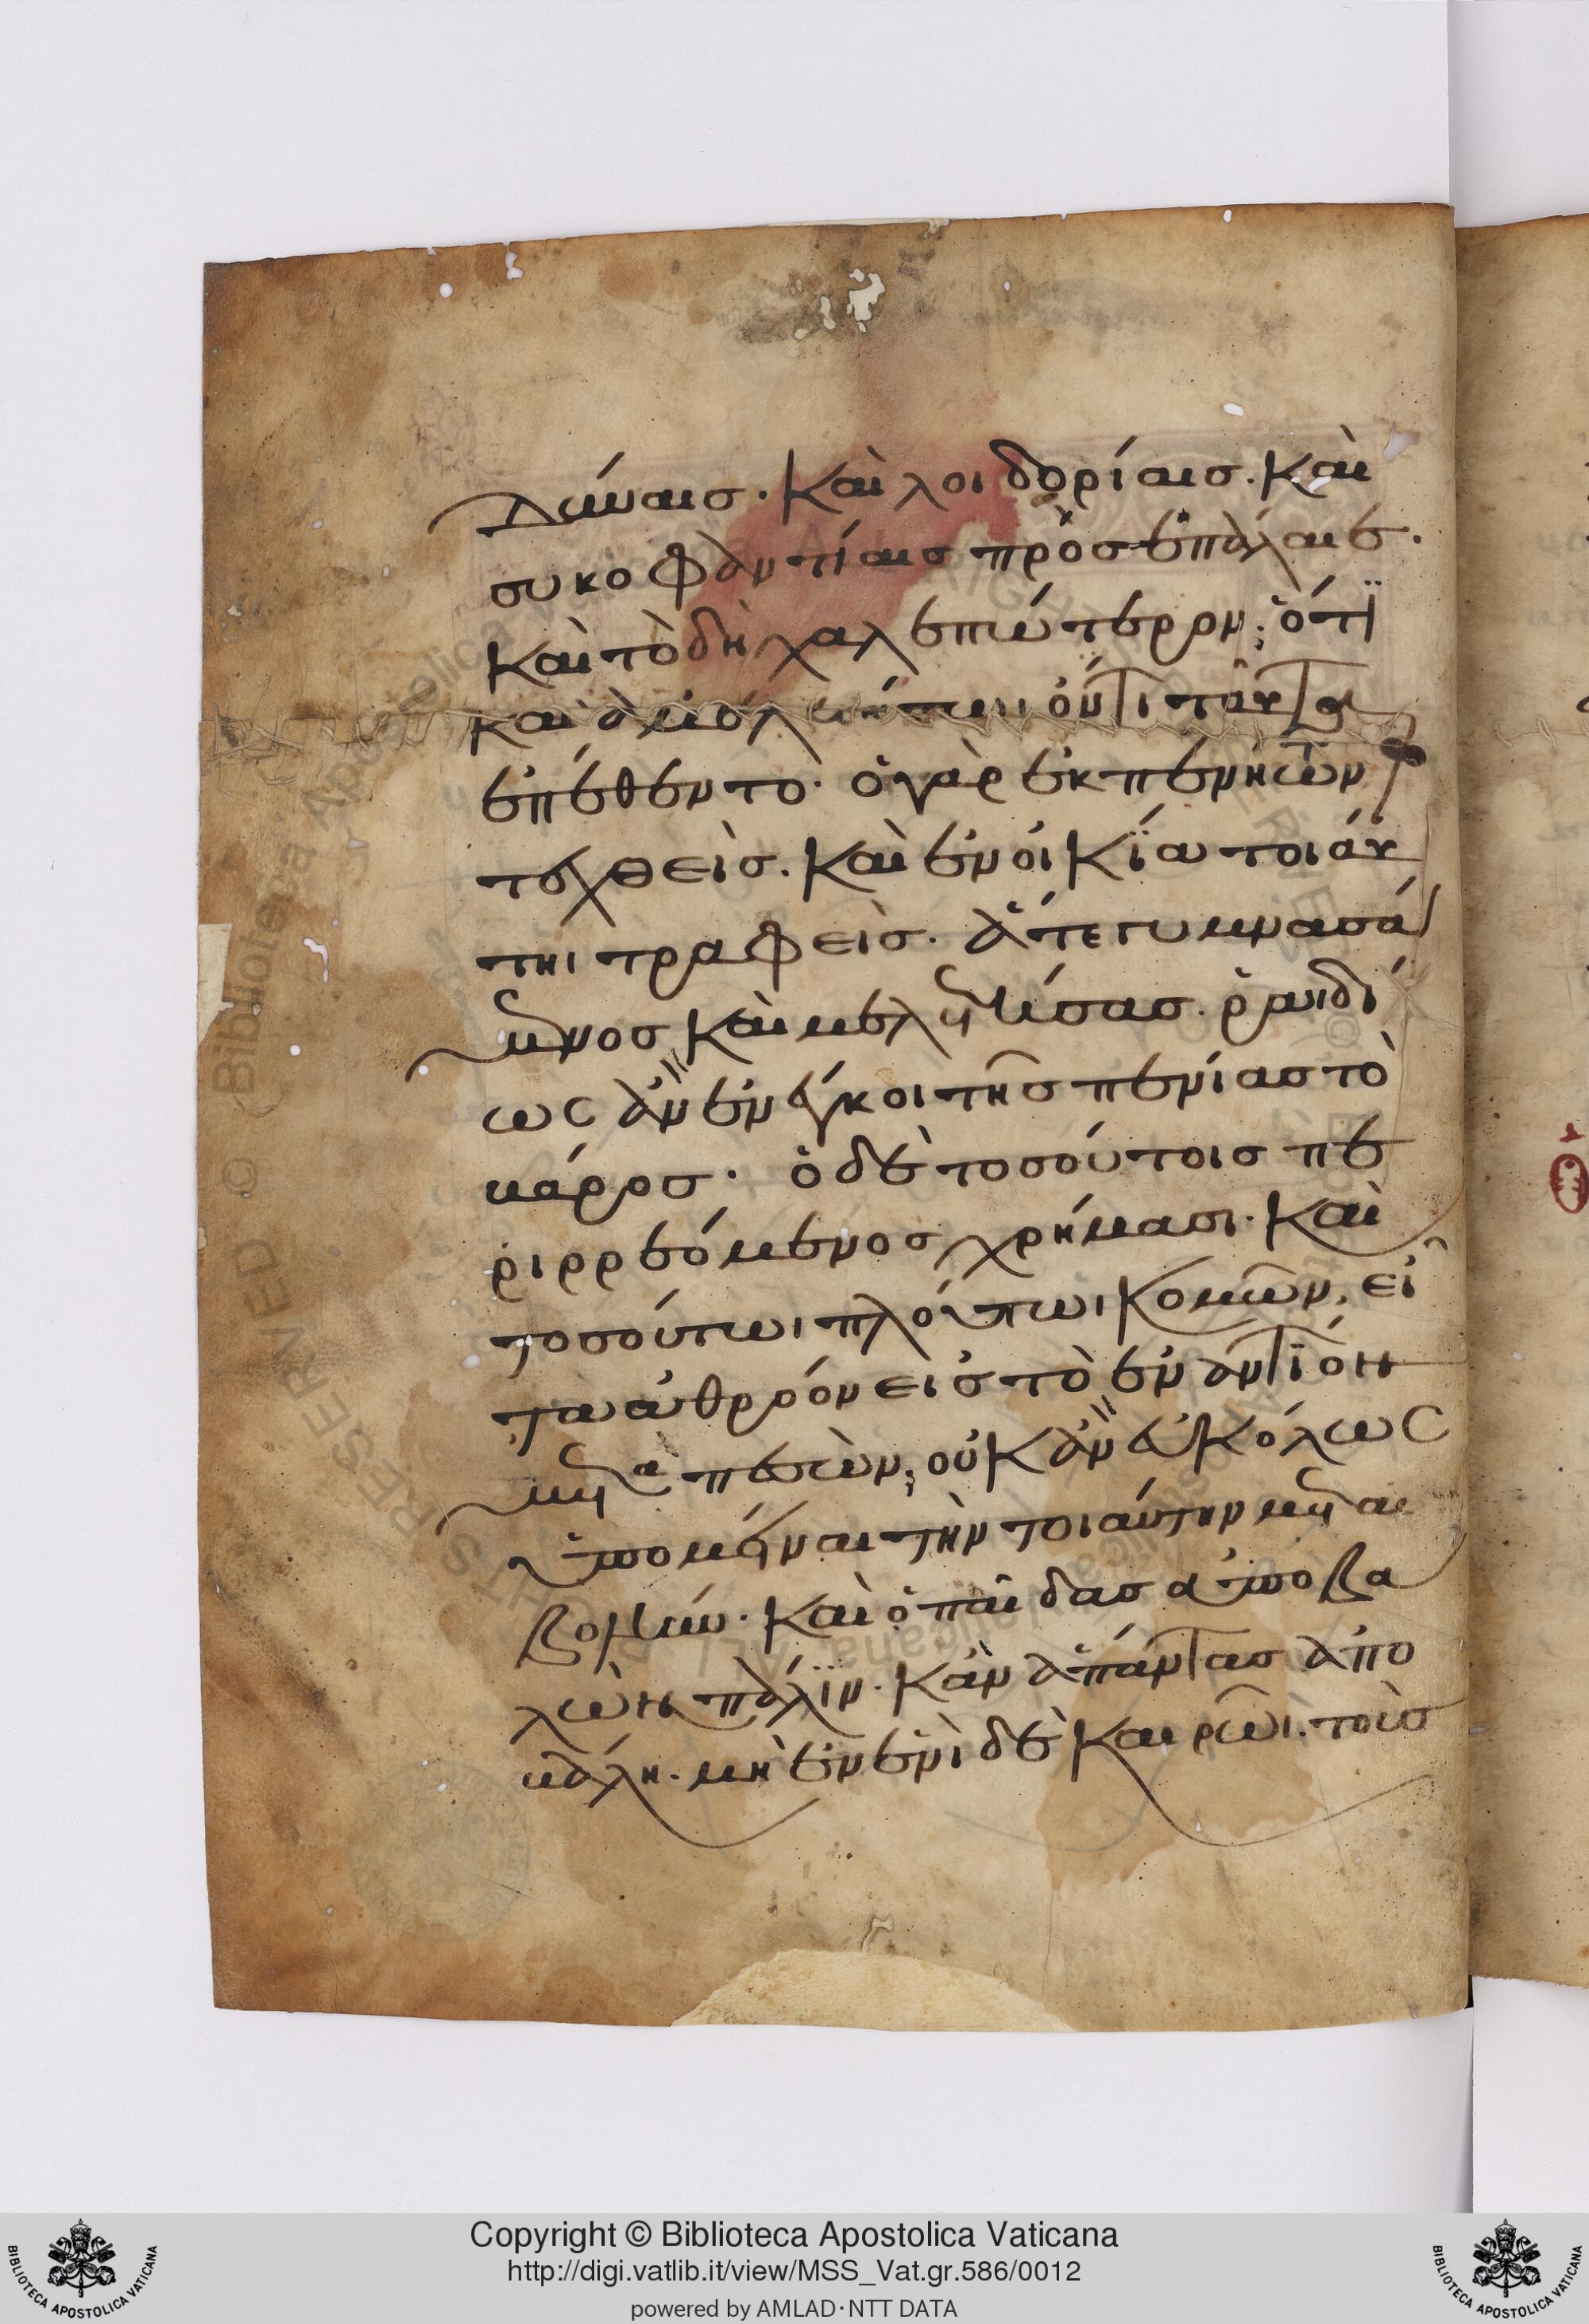 δύναις· καὶ λοιδορίαις· καὶ
συκοφαντίαις προσεπάλαιε·
καὶ τὸ δὴ χαλεπώτερον; ὅτϊ
καὶ ἀμελετήτωι ὄντι ταῦτα
ἐπέθεντο· ὁ γὰρ ἐκ πενήτων
τεχθεὶς· καὶ ἐν οἰκίαι τοιαύ
τηι τραφεὶς· ἅτε γυμνασά
μενος καὶ μελετήσας· ῥαιδί
ως ἂν ἐνέγκοι τῆς πενίας τὸ
βάρος· ὁ δὲ τοσούτοις πε
ριρρεόμενος χρήμασι· καὶ
τοσούτωι πλούτωι κομῶν, εἶ
τα ἀθρόον εἰς τὸ ἐναντϊον
μεταπεσὼν; οὐκ ἂν εὐκόλως
ὑπομείναι τὴν τοιαύτην μετα
βολήν· καὶ ὁ παῖδας ἀποβα
λὼν πάλϊν· κἂν ἅπαντας ἀπο
βάλη· μὴ ἐν ἑνὶ δὲ καιρῶι· τοῖς
Copyright © Biblioteca Apostolica Vaticana
http://digi.vatlib.it/view/MSS_Vat.gr.586/0012
powered by AMLAD·NTT DATA
BIBLIOTECA APOSTOLICA VATICANA
BIBLIOTECA APOSTOLICA VATICANA